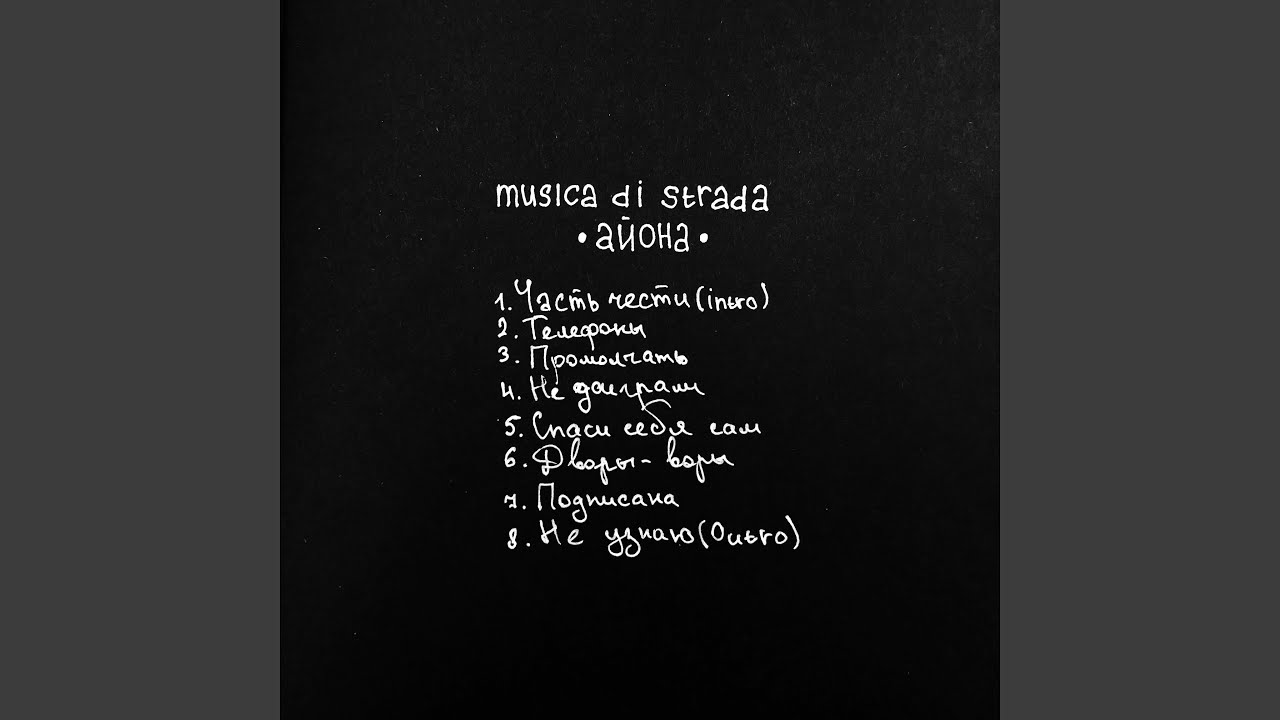 musica di strada
• айона •
1. Часть чести (intro)
2. Телефоны
3. Промолчать
4. Не доиграли
5. Спаси себя сам
6. Дворы - воры
7. Подписана
8. Не узнаю (Outro)